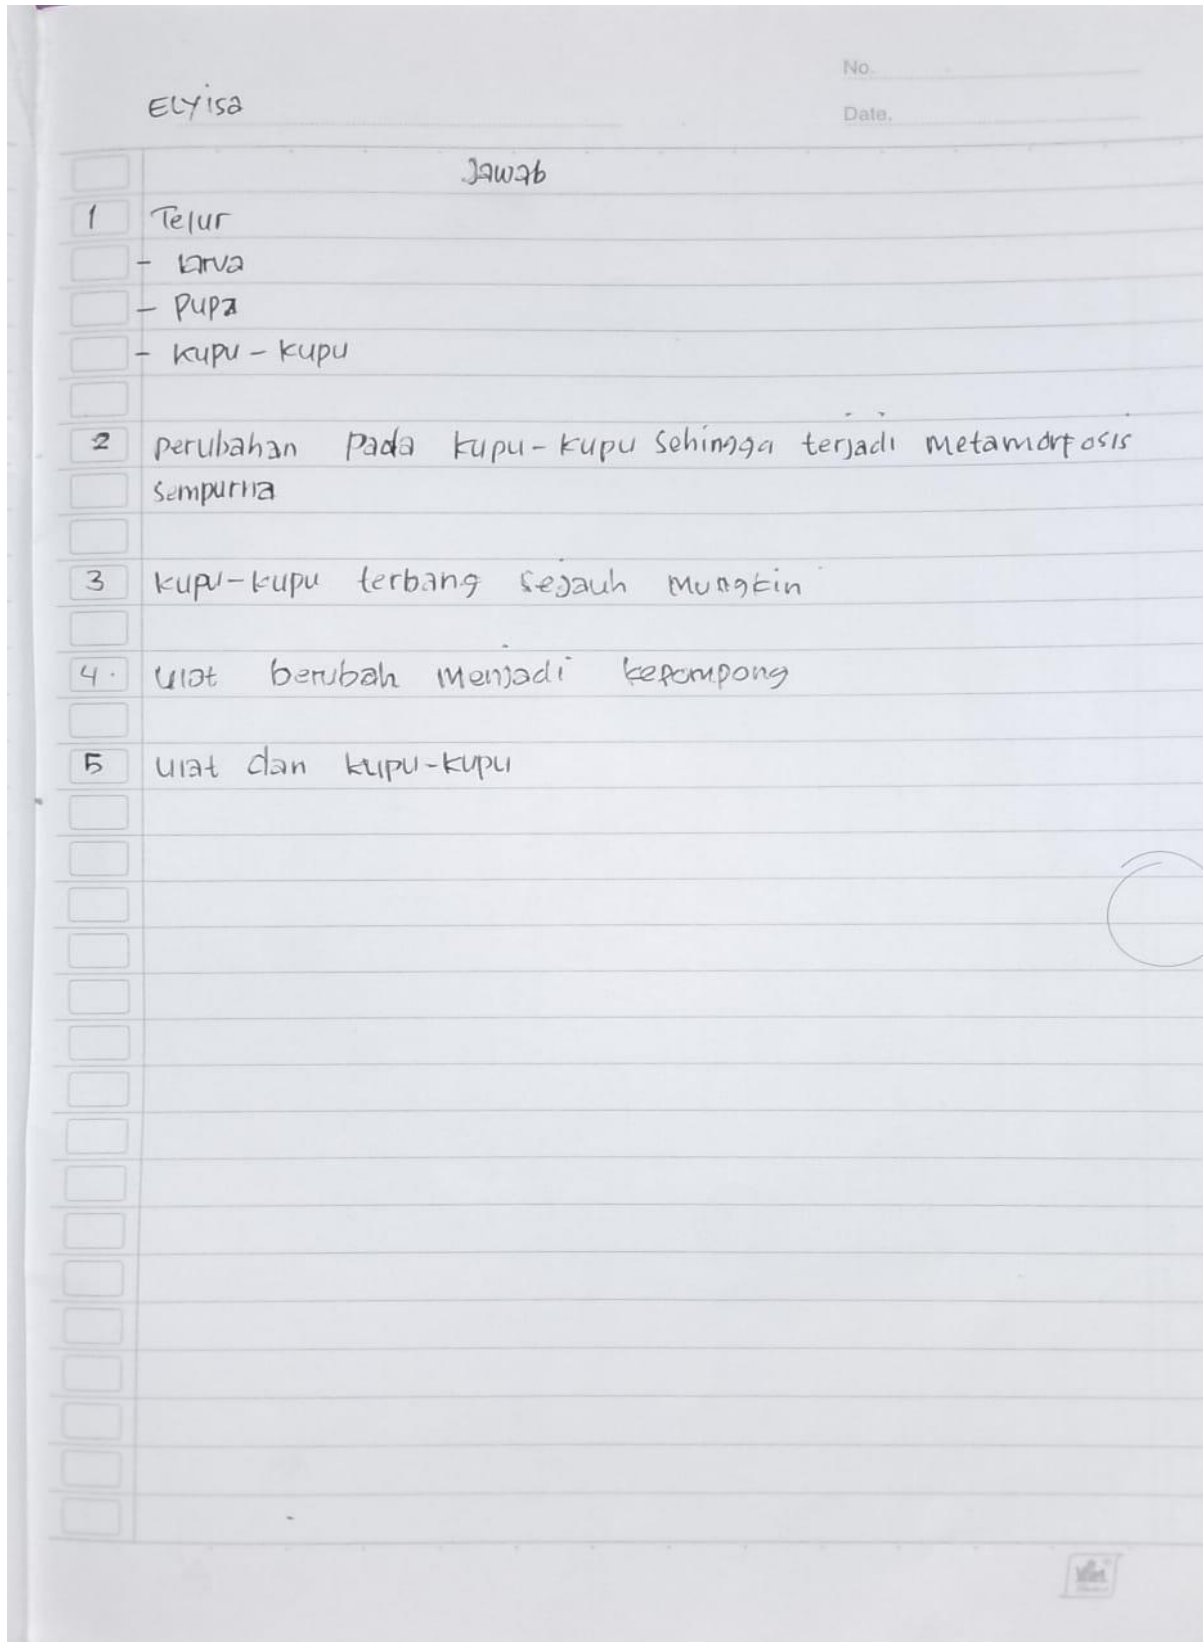 No.
Elyisa
Date.
Jawab
1 Telur
- larva
- Pupa
- kupu - kupu
2 perubahan Pada kupu-kupu Sehingga terjadi metamorfosis
Sempurna
3 kupu-kupu terbang sejauh mungkin
4. ulat berubah menjadi kepompong
5 ulat dan kupu-kupu